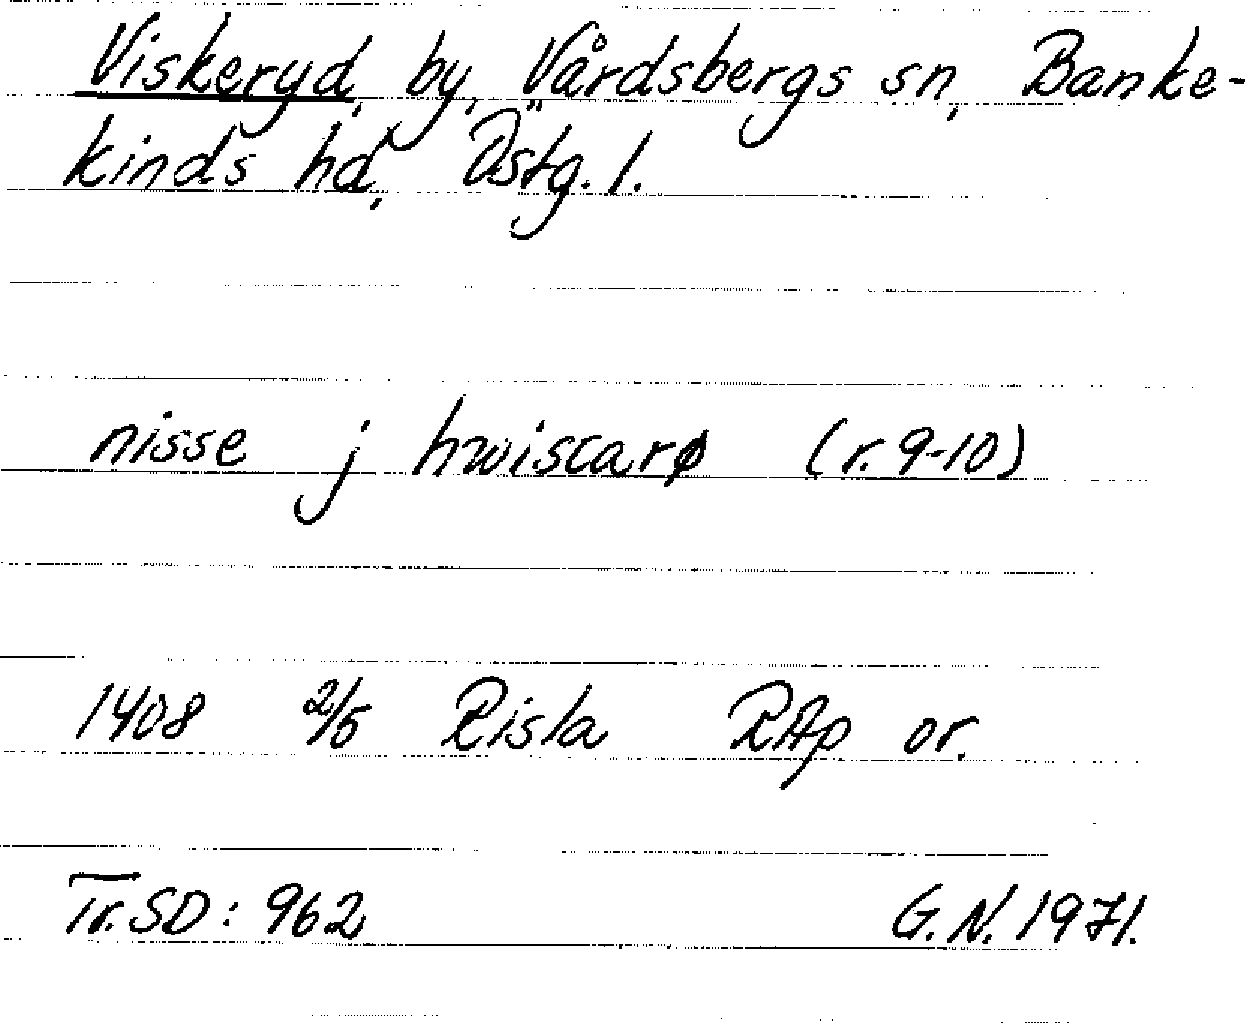 Viskeryd, by, Vårdsbergs sn, Banke-
kinds hd, Östg. l.
nisse j hwiscarø (r. 9-10)
1408 2/5 Risla RAp or.
Tr. SD: 962 G. N. 1971.